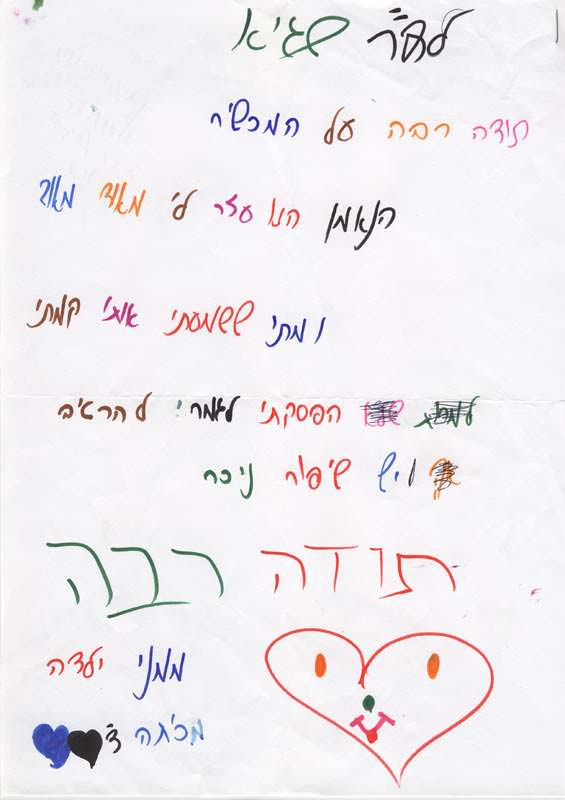 לד"ר שגיא
תודה רבה על המכשיר
הנאמן הוא עזר לי מאוד מאוד
ומתי ששמעתי אותו קמתי
הפסקתי לגמרי להרטיב
ויש שיפור ניכר
תודה רבה
ממני ילדה
מכיתה ד'